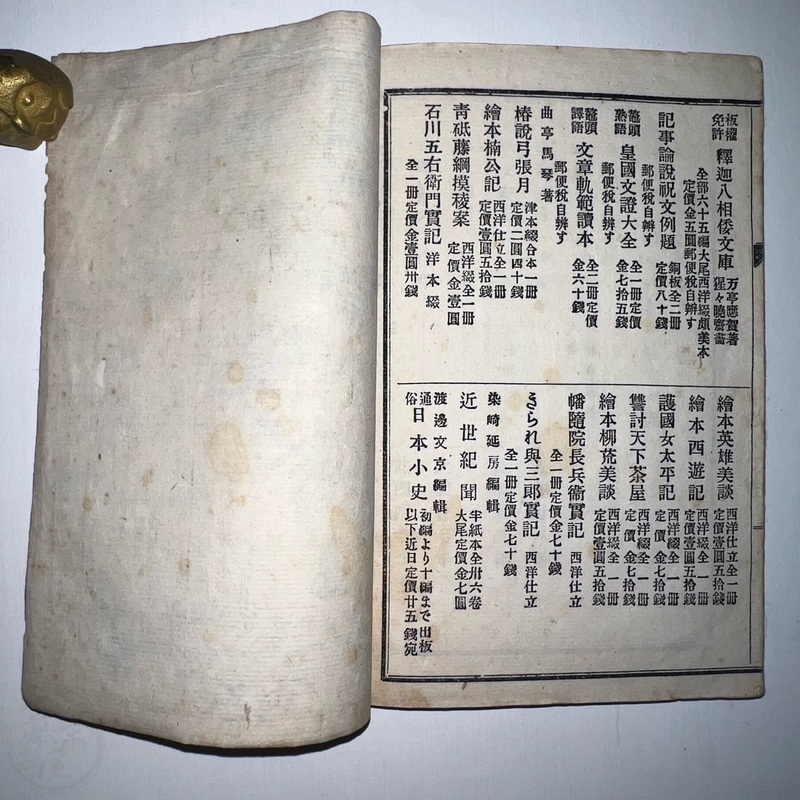 板權免許 釋迦八相倭文庫 万亭應賀著 猩々曉齋畵
全部六十五編大尾西洋綴頗美本
定價金五圓郵便稅自辨す
記事論說祝文例題 銅板全二冊 定價八十錢
郵便稅自辨す
鼇頭熟語 皇國文證大全 全一冊定價 金七拾五錢
郵便稅自辨す
鼇頭譯語 文章軌範讀本 全二冊定價 金六十錢
郵便稅自辨す
曲亭馬琴著
椿說弓張月 津本綴合本一冊 定價二圓四十錢
繪本楠公記 西洋仕立全一冊 定價壹圓五拾錢
靑砥藤綱摸稜案 西洋綴全一冊 定價金壹圓
石川五右衛門實記 洋本綴
全一冊定價金壹圓卅錢
繪本英雄美談 西洋仕立全一冊 定價壹圓五拾錢
繪本西遊記 西洋綴全一冊 定價壹圓五拾錢
護國女太平記 西洋綴全一冊 定價金七拾錢
讐討天下茶屋 西洋綴全一冊 定價金七拾錢
繪本柳荒美談 西洋綴全一冊 定價壹圓五拾錢
幡隨院長兵衞實記 西洋仕立
全一冊定價金七十錢
きられ與三郎實記 西洋仕立
全一冊定價金七十錢
染崎延房編輯
近世紀聞 半紙本全卅六卷 大尾定價金七圓
渡邊文京編輯
通俗日本小史 初編より十編まで出板 以下近日定價廿五錢宛